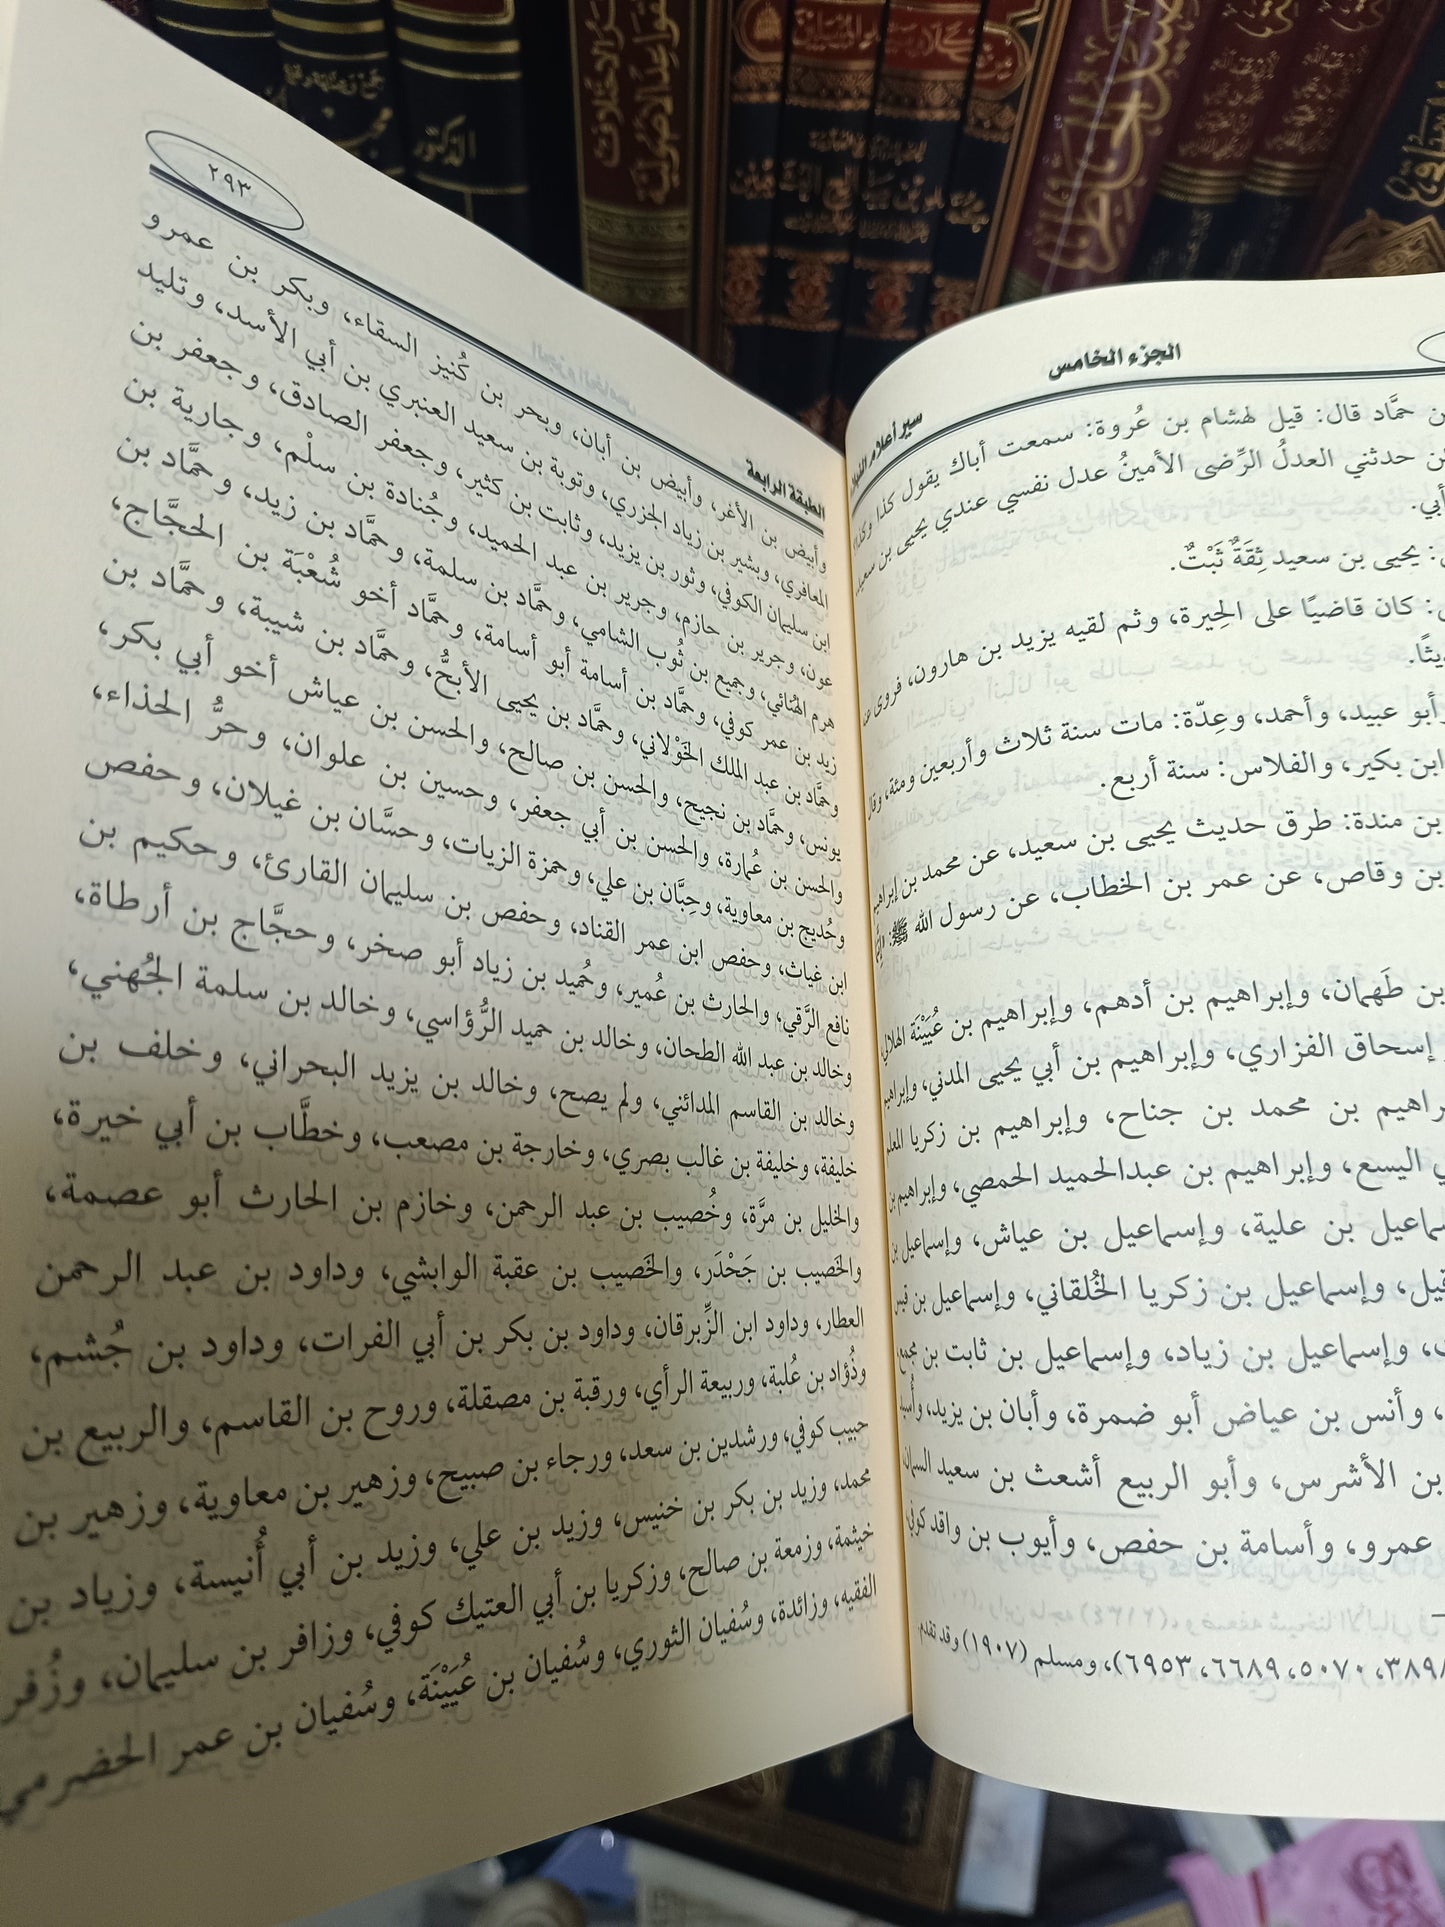 الجزء الخامس
سير أعلام النبلاء
ن حمَّاد قال: قيل لهشام بن عُروة: سمعت أباك يقول كذا وكذا؟
ن حدثني العدلُ الرِّضى الأمينُ عدل نفسي عندي يحيى بن سعيد،
أبي.
: يحيى بن سعيد ثِقَةٌ ثَبْتٌ.
: كان قاضيًا على الحِيرة، وثم لقيه يزيد بن هارون، فروى عنه
يثًا.
أبو عبيد، وأحمد، وعِدّة: مات سنة ثلاث وأربعين ومئة، وقال
ابن بكير، والفلاس: سنة أربع.
بن مندة: طرق حديث يحيى بن سعيد، عن محمد بن إبراهيم
بن وقاص، عن عمر بن الخطاب، عن رسول الله ﷺ:
بن طَهمان، وإبراهيم بن أدهم، وإبراهيم بن عُيَيْنَة الهلالي،
إسحاق الفزاري، وإبراهيم بن أبي يحيى المدني، وإبراهيم
راهيم بن محمد بن جناح، وإبراهيم بن زكريا المعلم
ي اليسع، وإبراهيم بن عبدالحميد الحمصي، وإبراهيم بن
ماعيل بن علية، وإسماعيل بن عياش، وإسماعيل بن
قيل، وإسماعيل بن زكريا الخُلقاني، وإسماعيل بن قيس
، وإسماعيل بن زياد، وإسماعيل بن ثابت بن مجمع،
، وأنس بن عياض أبو ضمرة، وأبان بن يزيد،
بن الأشرس، وأبو الربيع أشعث بن سعيد السمان
عمرو، وأسامة بن حفص، وأيوب بن واقد كوفي،
٣٨٩٨، ٥٠٧٠، ٦٦٨٩، ٦٩٥٣)، ومسلم (١٩٠٧) وقد تقدم.
الطبقة الرابعة
٢٩٣
وأبيض بن الأغر، وأبيض بن أبان، وبحر بن كُنيز السقاء، وبكر بن عمرو
المعافري، وبشير بن زياد الجزري، وتوبة بن سعيد العنبري بن أبي الأسد، وتليد
ابن سليمان الكوفي، وثور بن يزيد، وثابت بن كثير، وجعفر الصادق، وجعفر بن
عون، وجرير بن حازم، وجرير بن عبد الحميد، وجُنادة بن سلْم، وجارية بن
هرم الهُنائي، وجميع بن ثُوب الشامي، وحمَّاد بن سلمة، وحمَّاد بن زيد، وحمَّاد بن
زيد بن عمر كوفي، وحمَّاد بن أسامة أبو أسامة، وحمَّاد أخو شُعْبَة بن الحجَّاج،
وحمَّاد بن عبد الملك الخَوْلاني، وحمَّاد بن يحيى الأبحُّ، وحمَّاد بن شيبة، وحمَّاد بن
يونس، وحمَّاد بن نجيح، والحسن بن صالح، والحسن بن عياش أخو أبي بكر،
والحسن بن عُمارة، والحسن بن أبي جعفر، وحسين بن علوان، وحرُّ الحذاء،
وحُديج بن معاوية، وحِبَّان بن علي، وحمزة الزيات، وحسَّان بن غيلان، وحفص
ابن غياث، وحفص ابن عمر القناد، وحفص بن سليمان القارئ، وحكيم بن
نافع الرَّقي، والحارث بن عُمير، وحُميد بن زياد أبو صخر، وحجَّاج بن أرطاة،
وخالد بن عبد الله الطحان، وخالد بن حميد الرُّؤاسي، وخالد بن سلمة الجُهني،
وخالد بن القاسم المدائني، ولم يصح، وخالد بن يزيد البحراني، وخلف بن
خليفة، وخليفة بن غالب بصري، وخارجة بن مصعب، وخطَّاب بن أبي خيرة،
والخليل بن مرَّة، وخُصيب بن عبد الرحمن، وخازم بن الحارث أبو عصمة،
والخَصيب بن جَحْدَر، والخَصيب بن عقبة الوابشي، وداود بن عبد الرحمن
العطار، وداود ابن الزِّبرقان، وداود بن بكر بن أبي الفرات، وداود بن جُشم،
وذُؤاد بن عُلبة، وربيعة الرأي، ورقبة بن مصقلة، وروح بن القاسم، والربيع بن
حبيب كوفي، ورشدين بن سعد، ورجاء بن صبيح، وزهير بن معاوية، وزهير بن
محمد، وزيد بن بكر بن خنيس، وزيد بن علي، وزيد بن أبي أُنيسة، وزياد بن
خيثمة، وزمعة بن صالح، وزكريا بن أبي العتيك كوفي، وزافر بن سليمان، وزُفر
الفقيه، وزائدة، وسُفيان الثوري، وسُفيان بن عُيَيْنَة، وسُفيان بن عمر الحضرمي
الدكتور